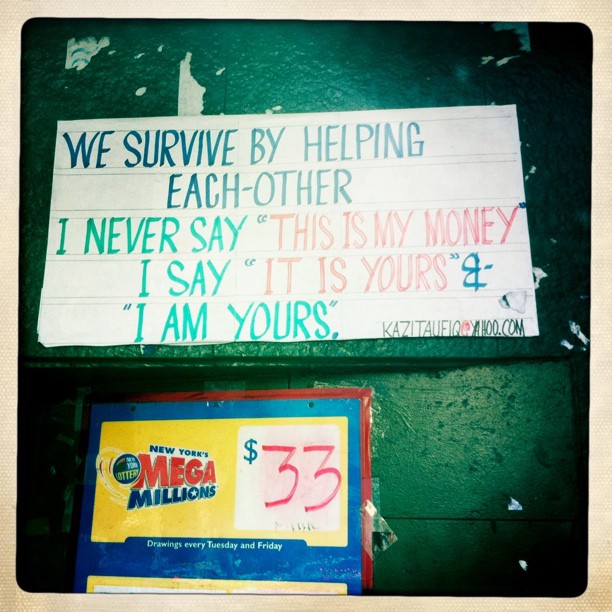 WE SURVIVE BY HELPING
EACH-OTHER
I NEVER SAY "THIS IS MY MONEY"
I SAY "IT IS YOURS" &
"I AM YOURS".
KAZITAUFIQ@YAHOO.COM
NEW YORK'S
NEW YORK LOTTERY
MEGA
MILLIONS
$33
Drawings every Tuesday and Friday